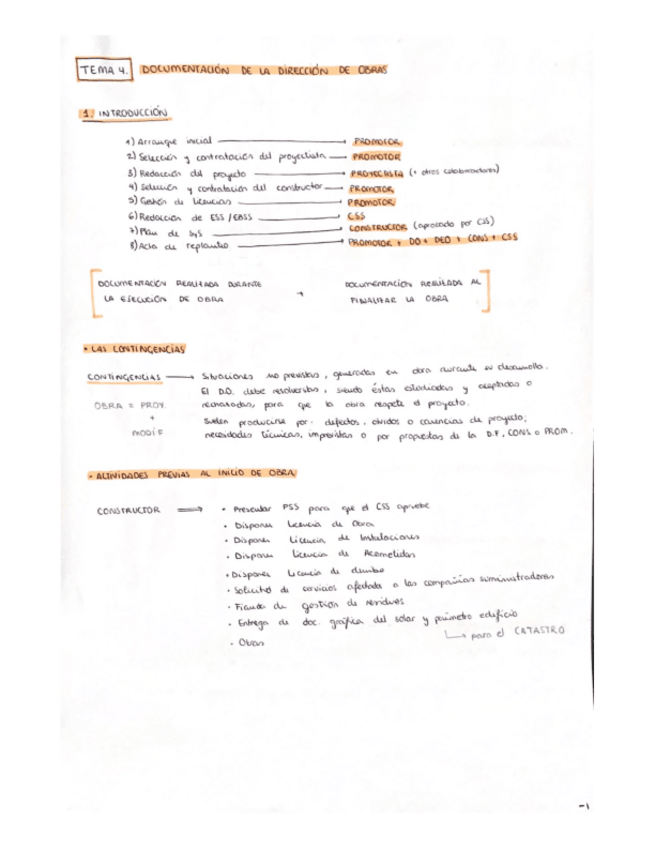 TEMA 4. DOCUMENTACIÓN DE LA DIRECCIÓN DE OBRAS
1. INTRODUCCIÓN
1) Arranque inicial → PROMOTOR
2) Selección y contratación del proyectista → PROMOTOR
3) Redacción del proyecto → PROYECTISTA (+ otros colaboradores)
4) Selección y contratación del constructor → PROMOTOR
5) Gestión de licencias → PROMOTOR
6) Redacción de ESS / EBSS → CSS
7) Plan de SyS → CONSTRUCTOR (aprobado por CSS)
8) Acta de replanteo → PROMOTOR + DO + DEO + CONS + CSS
DOCUMENTACIÓN REALIZADA DURANTE + DOCUMENTACIÓN REALIZADA AL
LA EJECUCIÓN DE OBRA FINALIZAR LA OBRA
• LAS CONTINGENCIAS
CONTINGENCIAS → Situaciones no previstas, generadas en obra durante su desarrollo.
El D.O. debe resolverlas, siendo éstas estudiadas y aceptadas o
OBRA = PROY. rechazadas, para que la obra respete el proyecto.
+ Suelen producirse por: defectos, olvidos o carencias de proyecto;
MODIF necesidades técnicas, imprevistos o por propuestas de la D.F, CONS o PROM.
• ACTIVIDADES PREVIAS AL INICIO DE OBRA
CONSTRUCTOR ⟹ • Presentar PSS para que el CSS apruebe
• Disponer Licencia de Obra
• Disponer Licencia de Instalaciones
• Disponer Licencia de Acometidas
• Disponer Licencia de derribo
• Solicitud de servicios afectados a las compañías suministradoras
• Fianza de gestión de residuos
• Entrega de doc. gráfica del solar y perímetro edificio
↳ para el CATASTRO
• Otros
-1